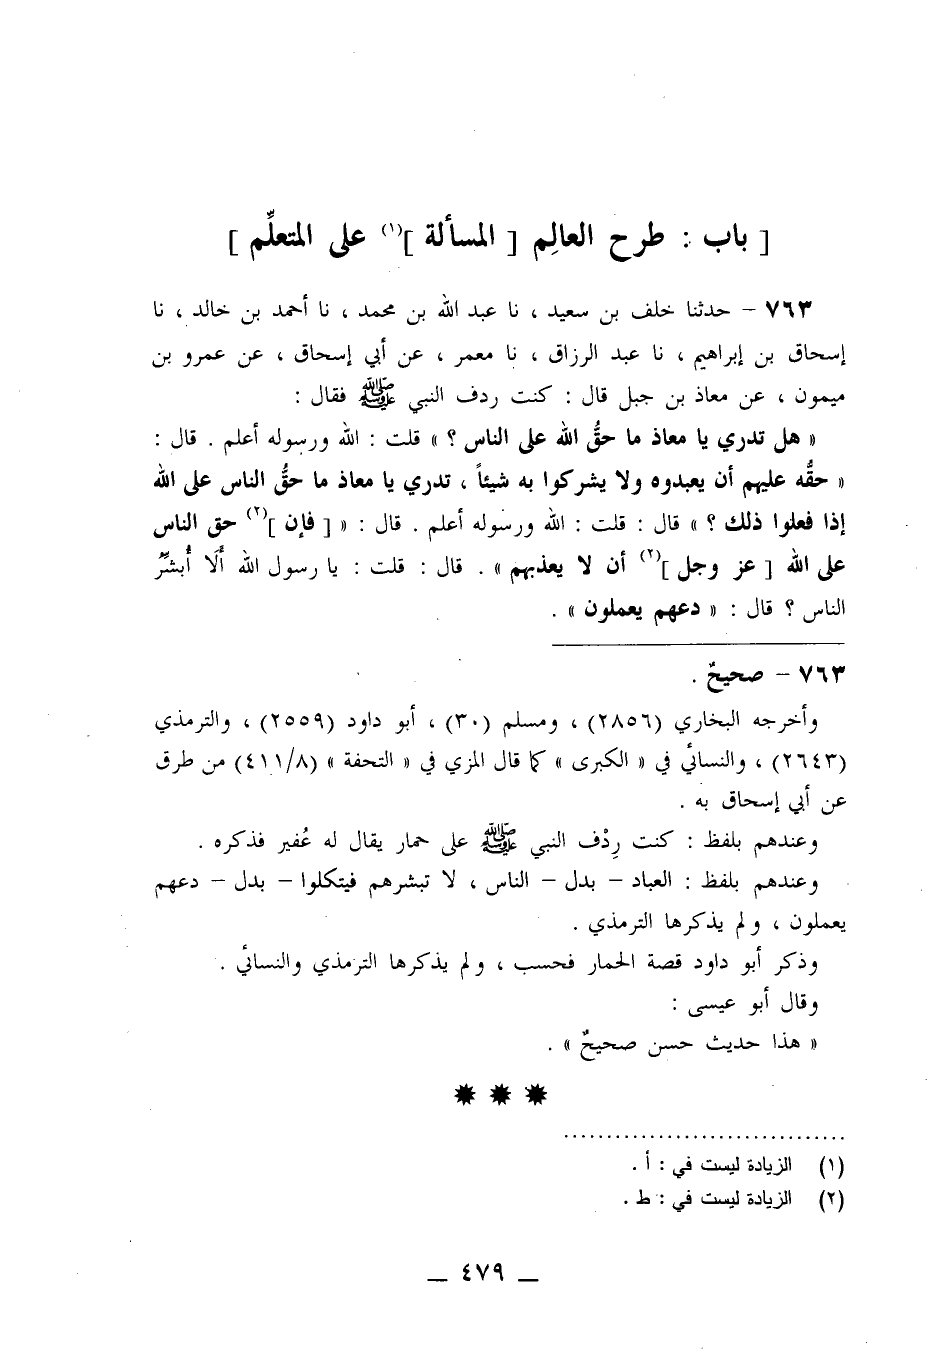 [ باب : طرح العالِم [ المسألة ](١) على المتعلِّم ]
٧٦٣ - حدثنا خلف بن سعيد ، نا عبد الله بن محمد ، نا أحمد بن خالد ، نا
إسحاق بن إبراهيم ، نا عبد الرزاق ، نا معمر ، عن أبي إسحاق ، عن عمرو بن
ميمون ، عن معاذ بن جبل قال : كنت ردف النبي ﷺ فقال :
« هل تدري يا معاذ ما حقُّ الله على الناس ؟ » قلت : الله ورسوله أعلم . قال :
« حقُّه عليهم أن يعبدوه ولا يشركوا به شيئاً ، تدري يا معاذ ما حقُّ الناس على الله
إذا فعلوا ذلك ؟ » قال : قلت : الله ورسوله أعلم . قال : « [ فإن ](٢) حق الناس
على الله [ عز وجل ](٢) أن لا يعذبهم » . قال : قلت : يا رسول الله أَلَا أُبشِّرُ
الناس ؟ قال : « دعهم يعملون » .
٧٦٣ - صحيحٌ .
وأخرجه البخاري (٢٨٥٦) ، ومسلم (٣٠) ، أبو داود (٢٥٥٩) ، والترمذي
(٢٦٤٣) ، والنسائي في « الكبرى » كما قال المزي في « التحفة » (٤١١/٨) من طرق
عن أبي إسحاق به .
وعندهم بلفظ : كنت رِدْف النبي ﷺ على حمار يقال له عُفير فذكره .
وعندهم بلفظ : العباد - بدل - الناس ، لا تبشرهم فيتكلوا - بدل - دعهم
يعملون ، ولم يذكرها الترمذي .
وذكر أبو داود قصة الحمار فحسب ، ولم يذكرها الترمذي والنسائي .
وقال أبو عيسى :
« هذا حديث حسن صحيحٌ » .
(١) الزيادة ليست في : أ .
(٢) الزيادة ليست في : ط .
_ ٤٧٩ _